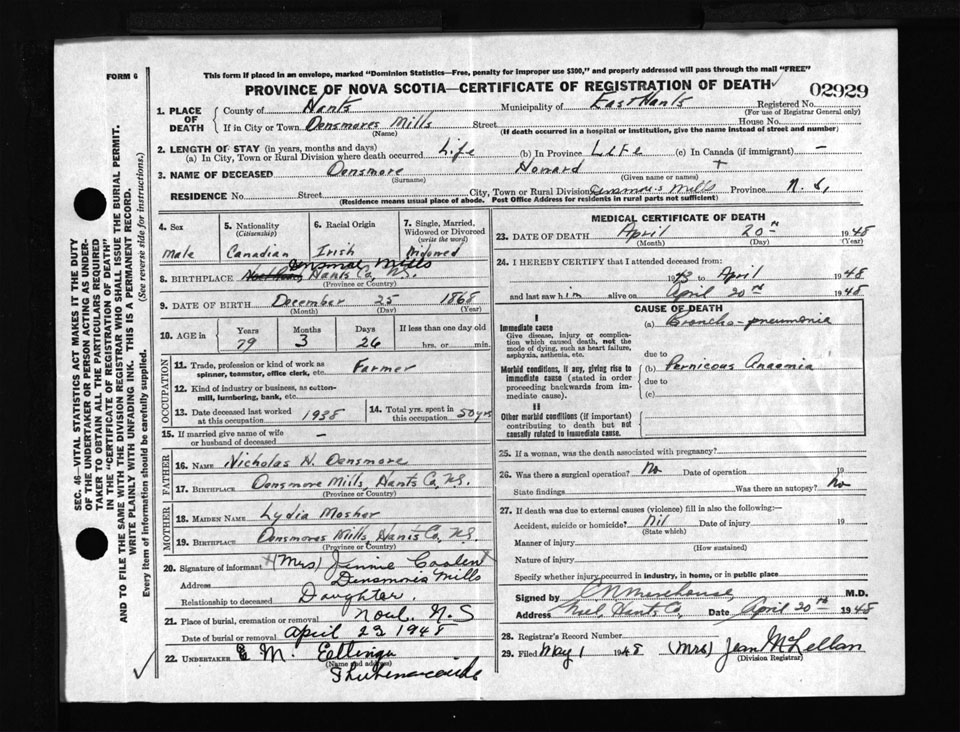 FORM 6
This form if placed in an envelope, marked "Dominion Statistics—Free, penalty for improper use $300," and properly addressed will pass through the mail "FREE"
PROVINCE OF NOVA SCOTIA—CERTIFICATE OF REGISTRATION OF DEATH
02929
1. PLACE OF DEATH
County of Hants Municipality of East Hants Registered No.
(For use of Registrar General only)
If in City or Town Densmores Mills Street House No.
(Name) (If death occurred in a hospital or institution, give the name instead of street and number)
2. LENGTH OF STAY (in years, months and days)
(a) In City, Town or Rural Division where death occurred Life (b) In Province Life (c) In Canada (if immigrant) —
3. NAME OF DECEASED Densmore Howard
(Surname) (Given name or names)
RESIDENCE No. Street City, Town or Rural Division Densmores Mills Province N.S.
(Residence means usual place of abode. Post Office Address for residents in rural parts not sufficient)
4. Sex
Male
5. Nationality
(Citizenship)
Canadian
6. Racial Origin
Irish
7. Single, Married, Widowed or Divorced
(write the word)
Widowed
8. BIRTHPLACE Densmores Mills Hants Co, N.S.
(Province or Country)
9. DATE OF BIRTH December 25 1868
(Month) (Day) (Year)
10. AGE in
Years Months Days If less than one day old
79 3 26 hrs. or min.
OCCUPATION
11. Trade, profession or kind of work as spinner, teamster, office clerk, etc. Farmer
12. Kind of industry or business, as cotton-mill, lumbering, bank, etc.
13. Date deceased last worked at this occupation 1938
14. Total yrs. spent in this occupation 50 yrs
15. If married give name of wife or husband of deceased —
FATHER
16. NAME Nicholas H. Densmore
17. BIRTHPLACE Densmore Mills, Hants Co, N.S.
(Province or Country)
MOTHER
18. MAIDEN NAME Lydia Mosher
19. BIRTHPLACE Densmores Mills, Hants Co, N.S.
(Province or Country)
20. Signature of informant (Mrs)
Address Densmores Mills
Relationship to deceased Daughter.
21. Place of burial, cremation or removal Noel. N.S
Date of burial or removal April 23 1948
22. UNDERTAKER E M.
(Name and address)
Shubenacadie
MEDICAL CERTIFICATE OF DEATH
23. DATE OF DEATH April 20th 1948
(Month) (Day) (Year)
24. I HEREBY CERTIFY that I attended deceased from:
1943 to April 1948
and last saw him alive on April 20th 1948
CAUSE OF DEATH
I
Immediate cause
Give disease, injury or complication which caused death, not the mode of dying, such as heart failure, asphyxia, asthenia, etc.
(a) Broncho-pneumonia
due to
Morbid conditions, if any, giving rise to immediate cause (stated in order proceeding backwards from immediate cause).
(b) Pernicous Anaemia
due to
(c)
II
Other morbid conditions (if important) contributing to death but not causally related to immediate cause.
25. If a woman, was the death associated with pregnancy?
26. Was there a surgical operation? No Date of operation 19
State findings Was there an autopsy? No
27. If death was due to external causes (violence) fill in also the following:—
Accident, suicide or homicide? Nil Date of injury 19
(State which)
Manner of injury
(How sustained)
Nature of injury
Specify whether injury occurred in industry, in home, or in public place
Signed by M.D.
Address Noel, Hants Co, Date April 20th 1948
28. Registrar's Record Number
29. Filed May 1 1948 (Mrs) Jean McLellan
(Division Registrar)
SEC. 46—VITAL STATISTICS ACT MAKES IT THE DUTY OF THE UNDERTAKER OR PERSON ACTING AS UNDERTAKER TO OBTAIN ALL THE PARTICULARS REQUIRED IN THE "CERTIFICATE OF REGISTRATION OF DEATH" AND TO FILE THE SAME WITH THE DIVISION REGISTRAR WHO SHALL ISSUE THE BURIAL PERMIT.
WRITE PLAINLY WITH UNFADING INK. THIS IS A PERMANENT RECORD.
Every item of information should be carefully supplied. (See reverse side for instructions.)